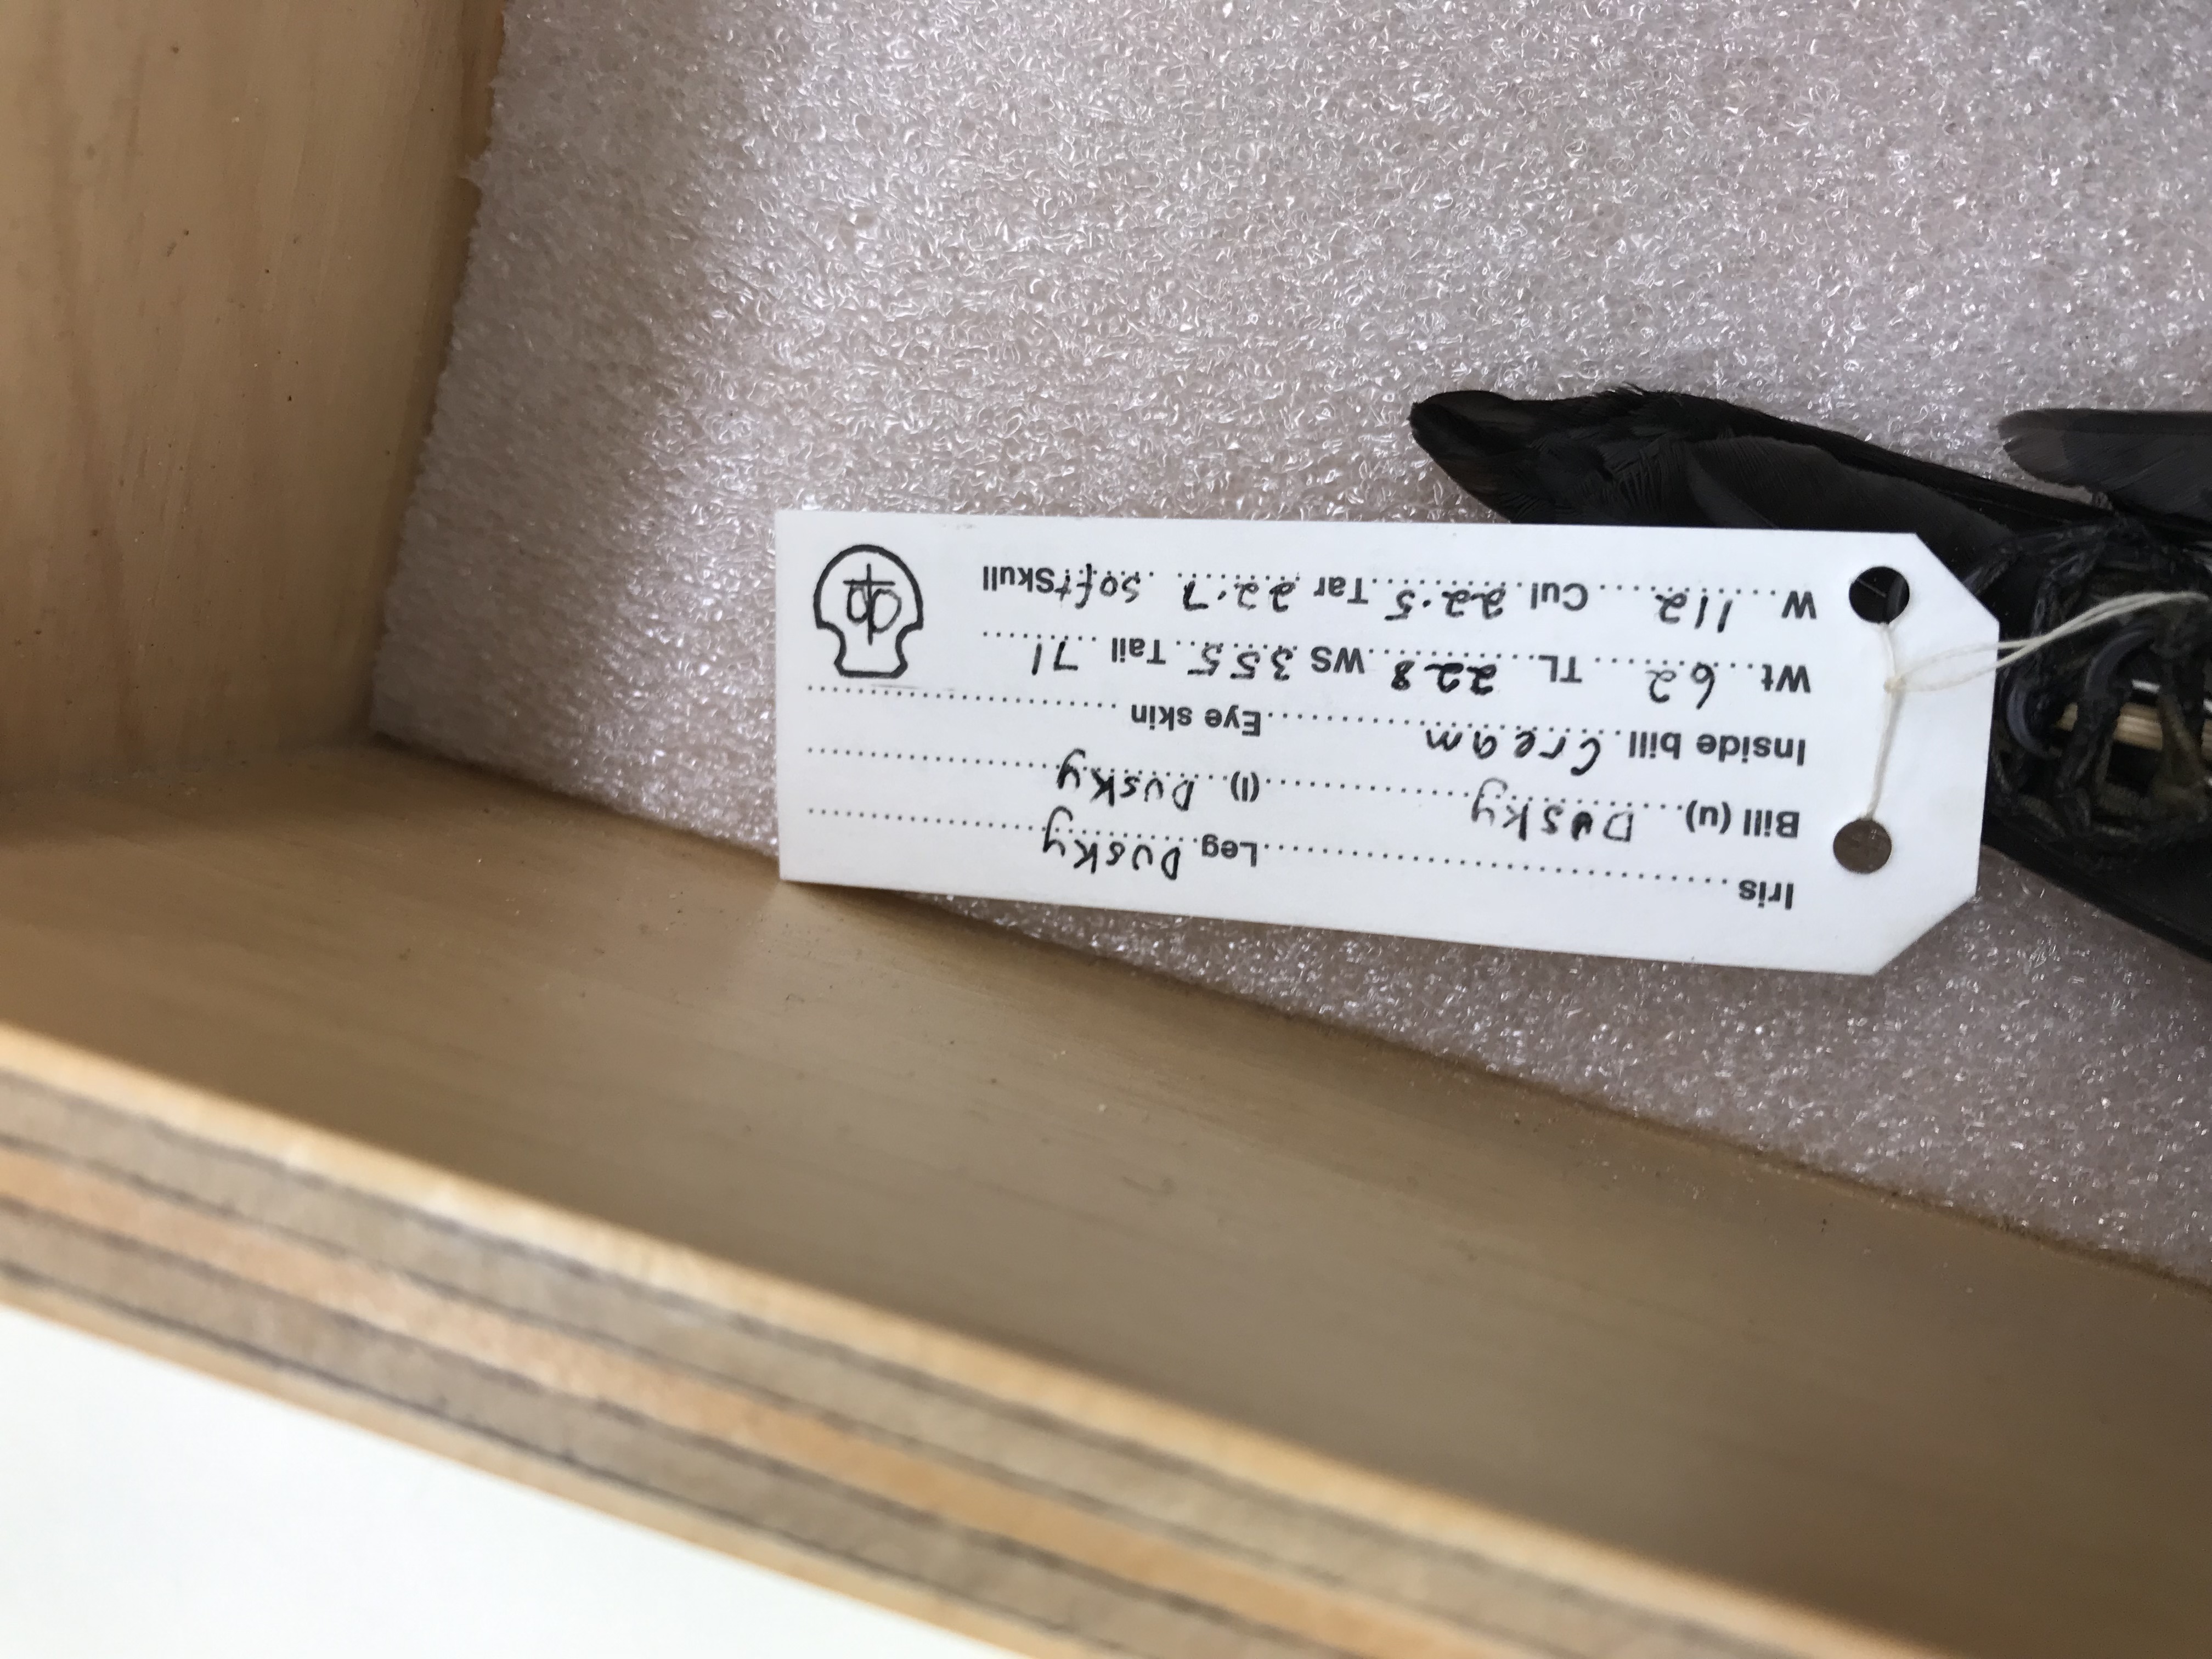 Iris.......... Leg Dusky
Bill (u) Dusky (l) Dusky
Inside bill Cream Eye skin
Wt 62 TL 228 WS 355 Tail 71
W 112 Cul 22.5 Tar 22.7 soft Skull